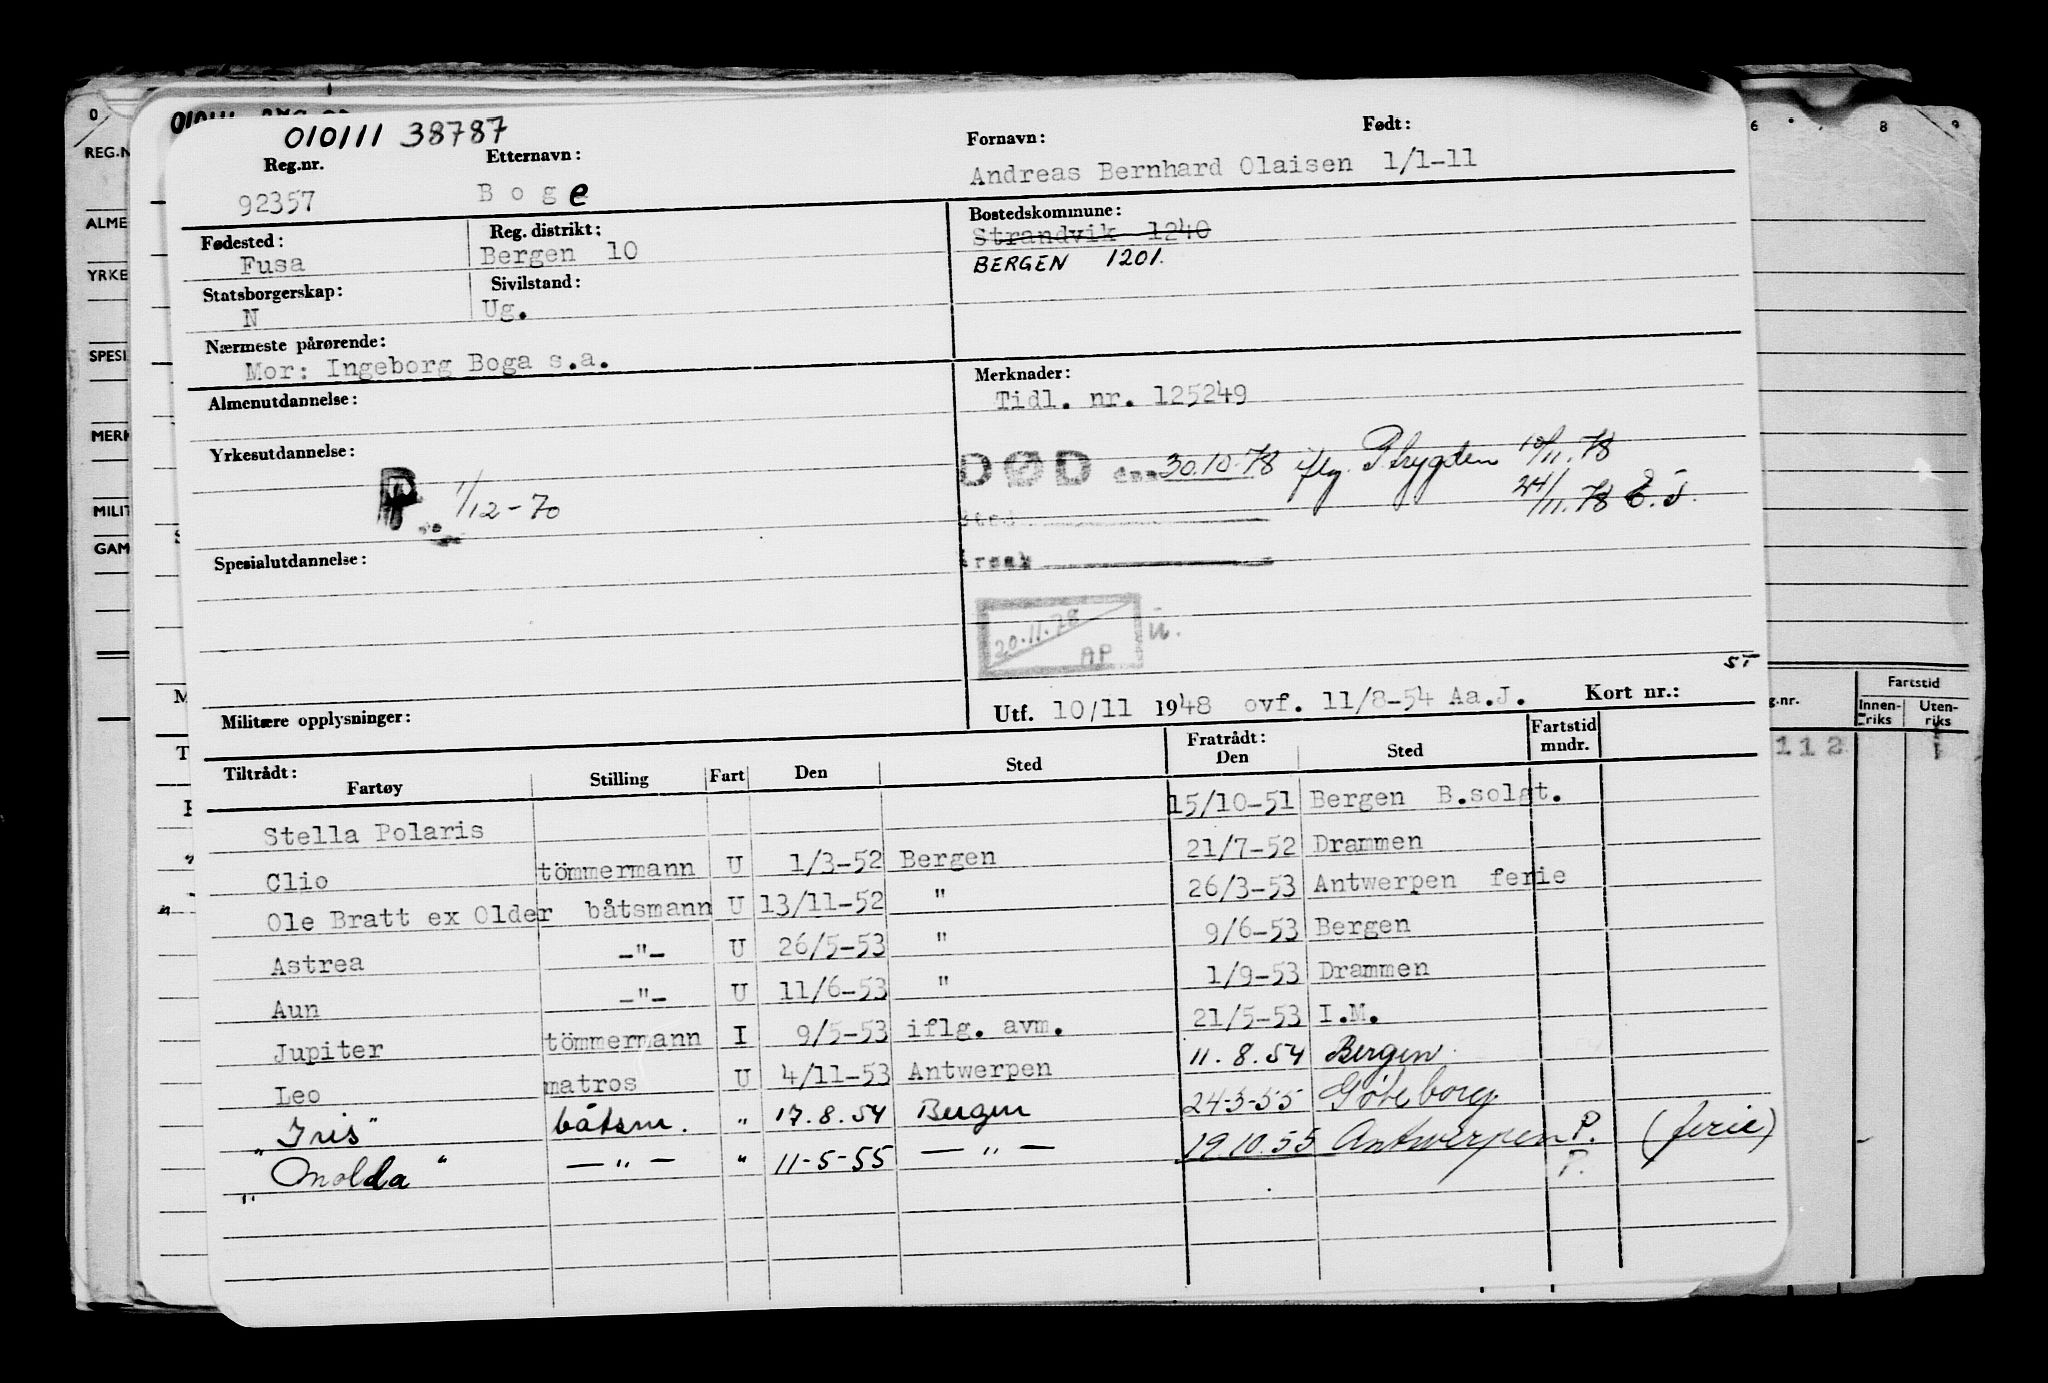 010111 38787
Reg.nr. Etternavn: Fornavn: Født:
92357 Boge Andreas Bernhard Olaisen 1/1-11
Fødested: Reg. distrikt: Bostedskommune:
Fusa Bergen 10 Strandvik 1240
BERGEN 1201.
Statsborgerskap: Sivilstand:
N Ug.
Nærmeste pårørende:
Mor: Ingeborg Boga s.a.
Merknader:
Almenutdannelse: Tidl. nr. 125249
Yrkesutdannelse:
DØD den 30.10.78 iflg. Ptrygden 10/11.78
P 1/12-70 24/11.78 E.J.
Sted
Årsak
Spesialutdannelse:
20.11.78
AP
ST
Militære opplysninger: Utf. 10/11 1948 ovf. 11/8-54 Aa.J. Kort nr.:
Tiltrådt: Fratrådt: Fartstid
Fartøy Stilling Fart Den Sted Den Sted mndr.
Stella Polaris 15/10-51 Bergen B.solgt.
Clio tömmermann U 1/3-52 Bergen 21/7-52 Drammen
Ole Bratt ex Older båtsmann U 13/11-52 " 26/3-53 Antwerpen ferie
Astrea -"- U 26/5-53 " 9/6-53 Bergen
Aun -"- U 11/6-53 " 1/9-53 Drammen
Jupiter tömmermann I 9/5-53 iflg. avm. 21/5-53 I.M.
Leo matros U 4/11-53 Antwerpen 11.8.54 Bergen
"Iris" båtsm. " 17.8.54 Bergen 24-3-55 Göteborg. P.
"Molda" -"- " 11-5-55 -"- 19.10.55 Antwerpen P. (ferie)
REG.N
ALME
YRKE
SPESI
MERK
MILIT
GAM
6 8 9
g.nr. Fartstid
Innen-riks Uten-riks
112